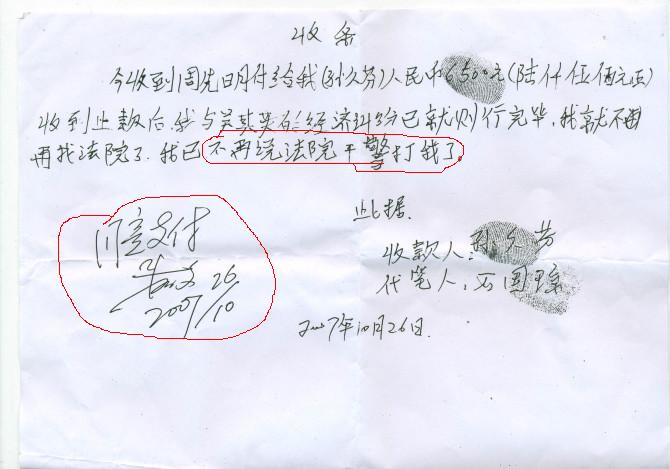 收条
今收到周先明付给我(孙久芬)人民币6500元(陆仟伍佰元正)
收到止款后,我与吴其英的经济纠纷已就执行完毕,我就不再
再找法院了.我已不再说法院干警打我了。
此据.
收款人:孙久芬
代笔人:万国琼
同意支付
26
2007/10
2007年10月26日.